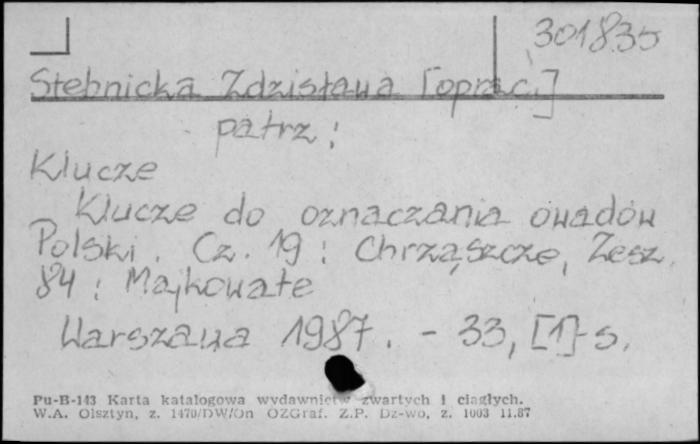 301835
Stebnicka Zdzisława [oprac.]
patrz:
Klucze
Klucze do oznaczania owadów
Polski. Cz. 19 : Chrząszcze, Zesz.
84 : Majkowate
Warszawa 1987. - 33, [1] s.
Pu-B-143 Karta katalogowa wydawnictw zwartych i ciągłych.
W.A. Olsztyn, z. 1470/DW/On OZGraf. Z.P. Dz-wo, z. 1003 11.87